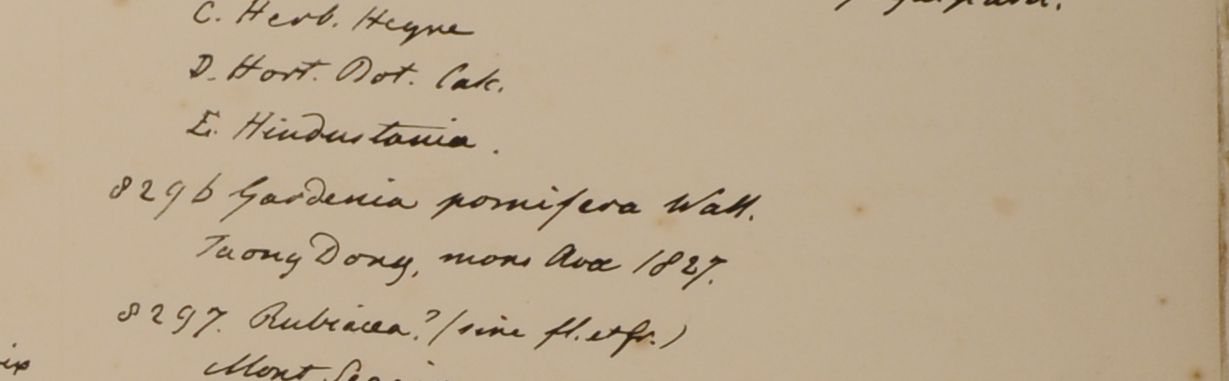 C. Herb. Heyne
D. Hort. Bot. Calc.
E. Hindustania.
8296 Gardenia pomifera Wall.
Taong Dong, mons Avae 1827.
8297. Rubiacea? (sine fl. et fr.)
Mont